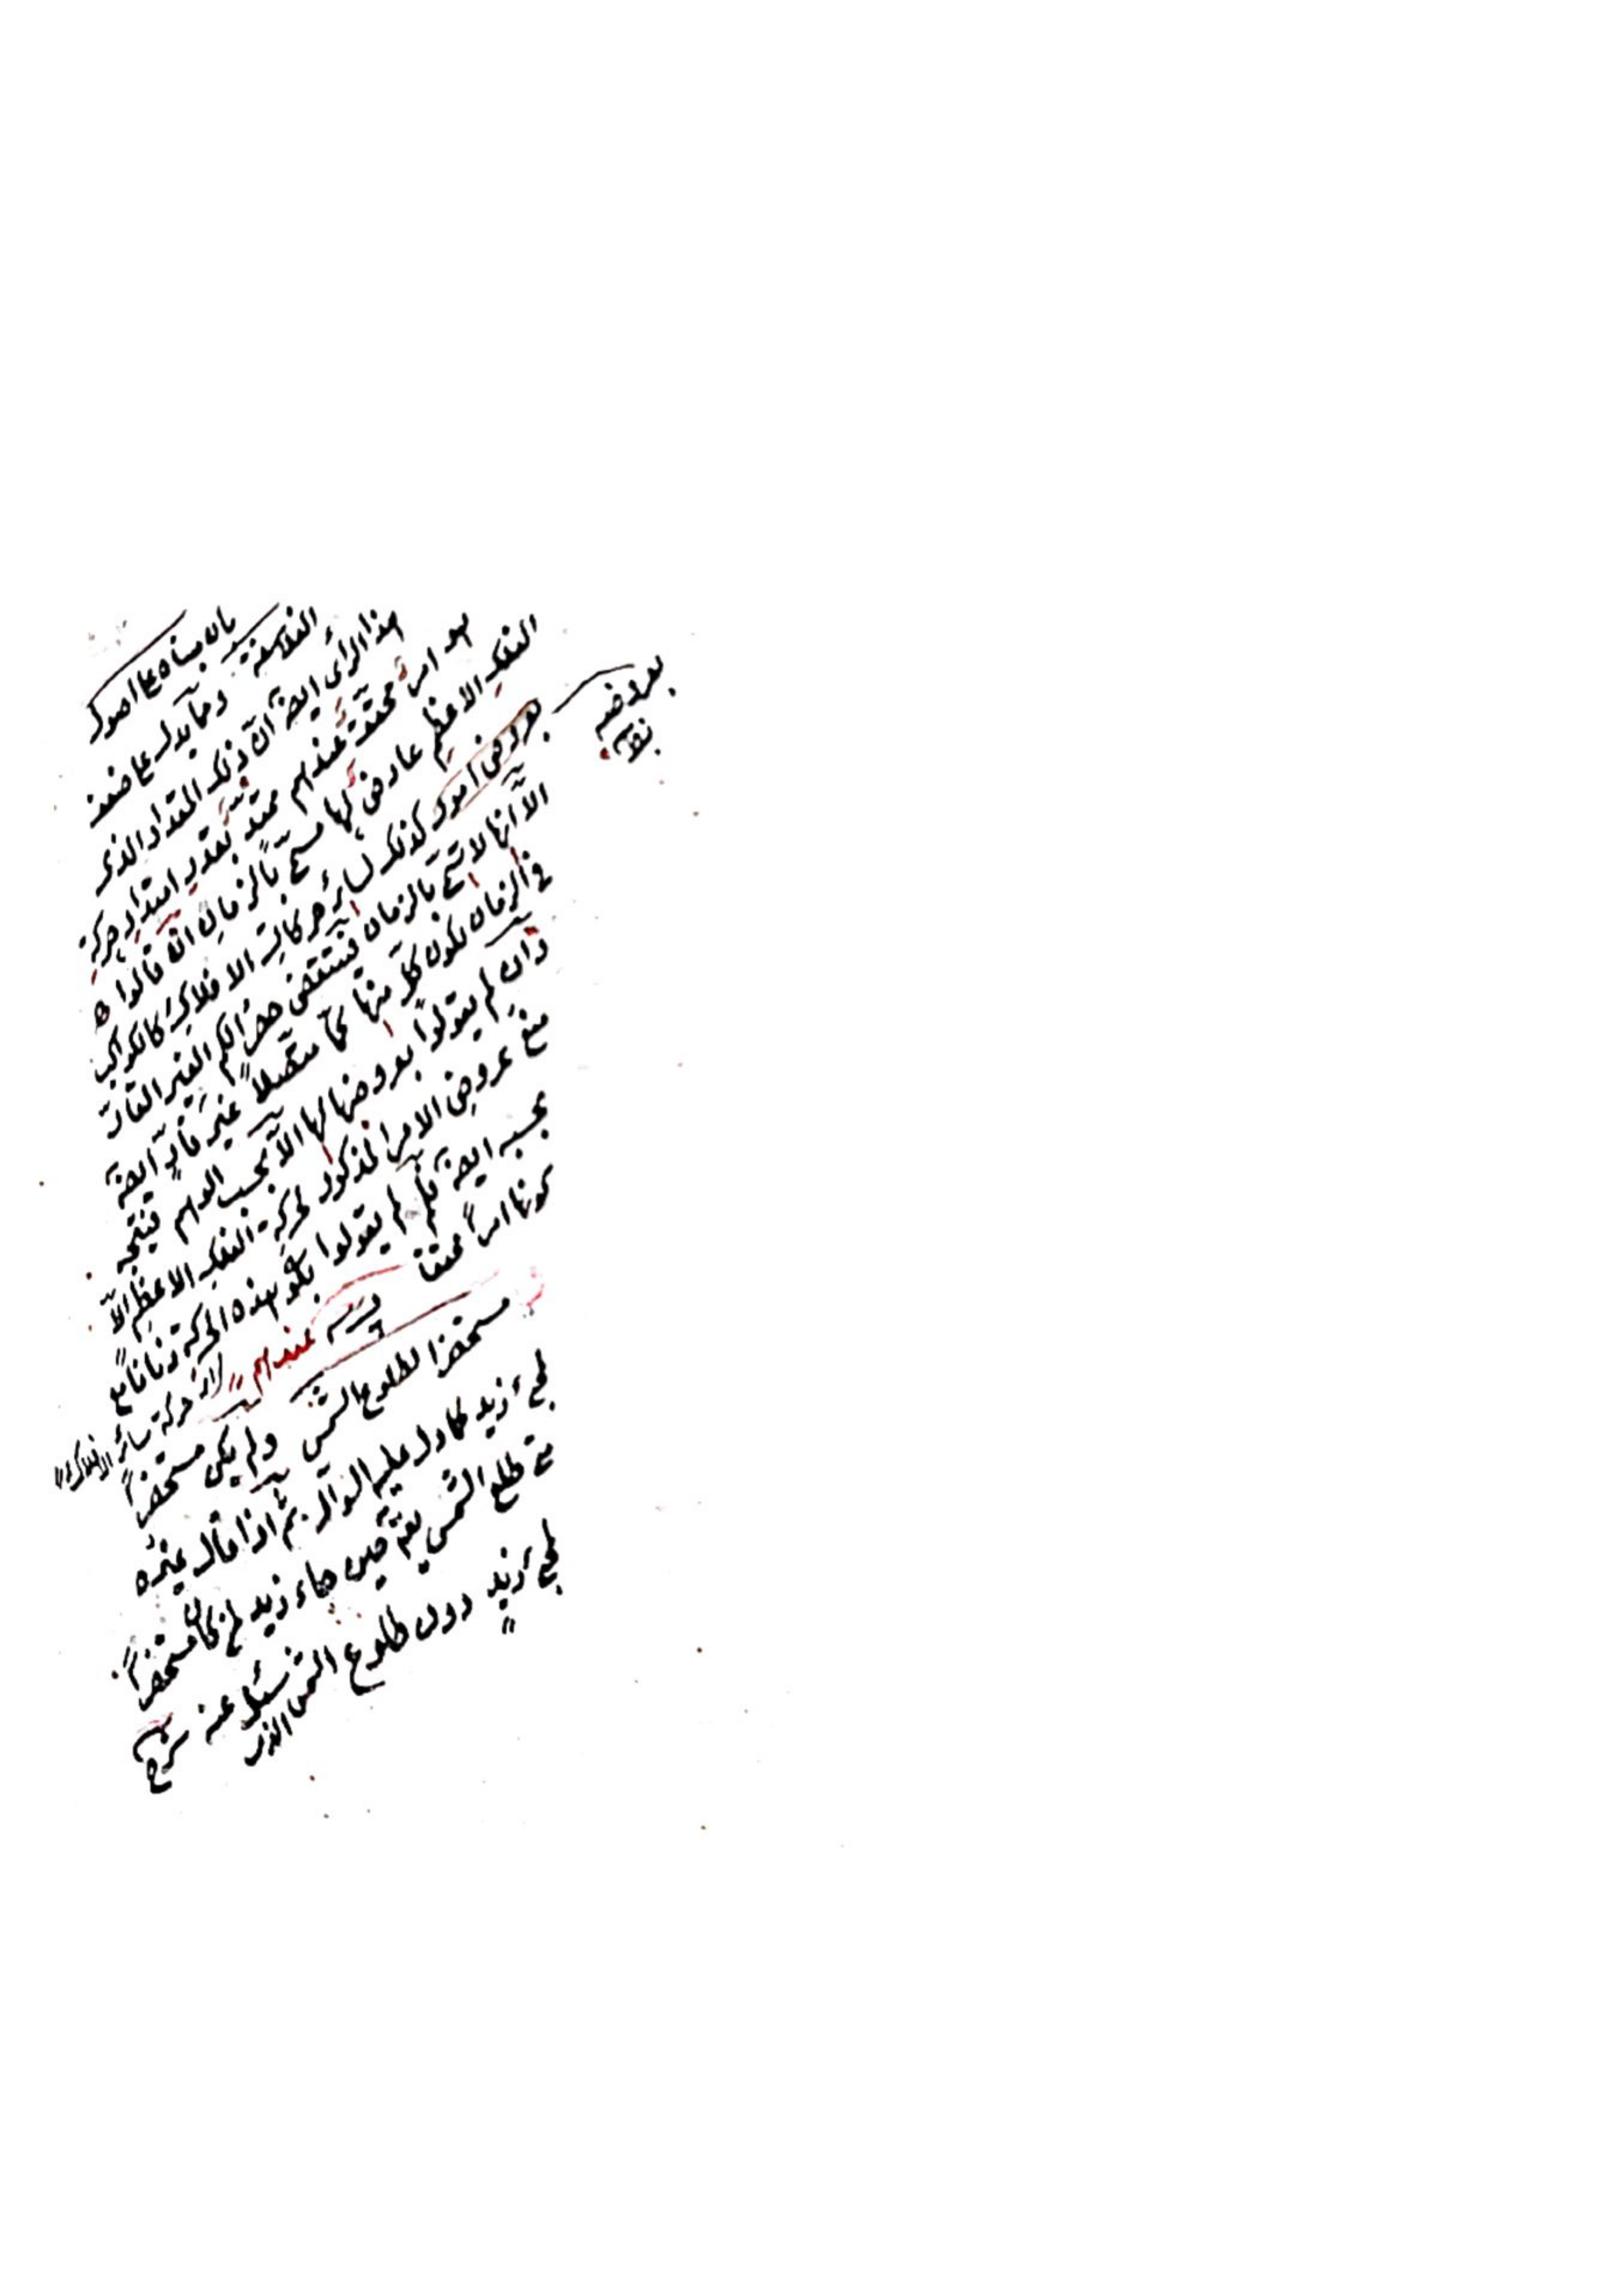 بان مبناه على اصول
الفلاسفة وما يدل على ضعف
هذا الرأى ايضا انّ ذلك المقدار الذى
هو امر محقق عندهم ممتد بقدر امتداد حركة
الفلك الاعظم عارض لها مسمى بالزمان انه قالوا
بعروض امور كذلك لسائر حركات الافلاك كالكواكب
الا انها لا تسمى بالزمان فينتقض حصر الكم الغير القارّ
فى الزمان لكون كل منها كما متصلا غير قارّ ايضا
وان لم يقولوا بعروضها لها الا بحسب الوهم فيتجه
منع عروض الامر المذكور لحركة الفلك الاعظم الا
بحسبه ايضا فلم لم يقولوا بكون هذه الحركة زمانا مع
كونها امرا محققا
عندهم
لان حركة سائر الافلاك
مستحضرا لطلوع الشمس ولم يكن مستحضرا
لمجئ زيد كما دل عليه السؤال ثم اذا قال غيره
متى طلع الشمس يقال حين جاء زيد لمن كان مستحضرا
لمجئ زيد دون طلوع الشمس الذى
سئل عنه شرح
بعروضه